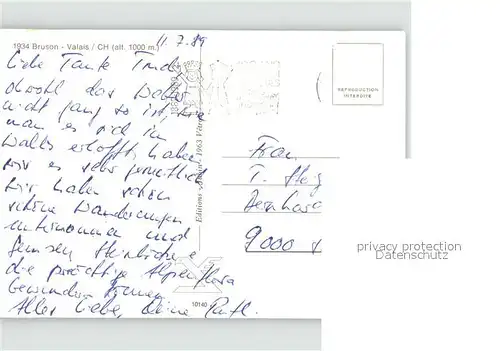 1934 Bruson - Valais / CH (alt. 1000 m.)
11.7.89
Liebe Tante Trudi
obwohl das Wetter
nicht ganz so ist, wie
man es sich im
Wallis erhofft, haben
wir es sehr gemütlich
Wir haben schon
schöne Wanderungen
unternommen und
die prächtige Alpenflora
bewundern können
Alles Liebe, Deine
REPRODUCTION
INTERDITE
Editions 1963
10140
Frau
T.
9000
privacy protection
Datenschutz